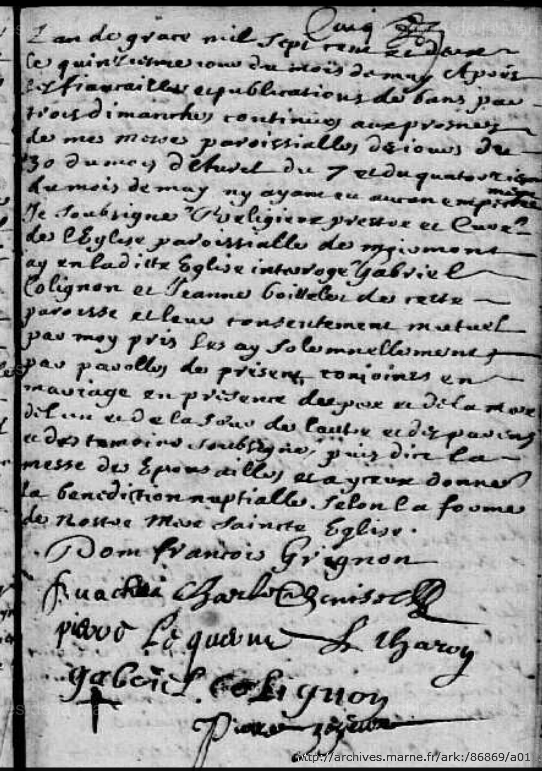 Cinq
L'an de grace mil sept cent et deux
le quinzieme jour du mois de may Apres
les fiancailles et publications de bans par
trois dimanches continues aux prosnes
de mes messes paroissialles des jours du
30 du mois d'Avril du 7 et du quatorzieme
du mois de may ny ayant eu aucun empeschement
Je soubsigne Religieux prestre et Curé
de l'Eglise paroissialle de
ay en laditte Eglise interroge Gabriel
Colignon et Jeanne boittelet de cette
paroisse et leur consentement mutuel
par moy pris les ay solemnellement
par parolles de present conjoincts en
mariage en presence du pere et de la mere
del un et de la de lautre et des parens
et des temoins soubsignes puis dit la
messe des Epousailles et a yceux donner
la benediction nuptialle selon la forme
de nostre Mere Saincte Eglise.
Dom francois Grignon
Charle
pierre Lequeux Tharoy
gabriel Colignon
Pierre
http://archives.marne.fr/ark:/86869/a01